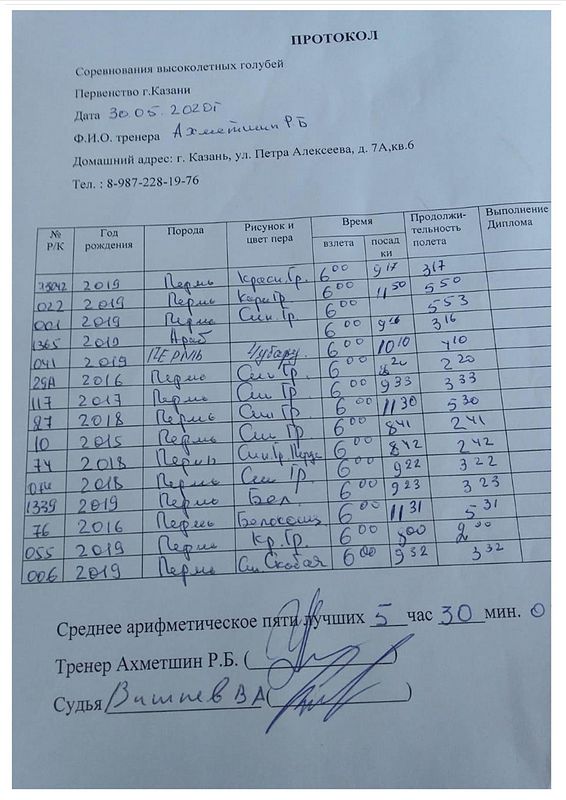 ПРОТОКОЛ
Соревнования высоколетных голубей
Первенство г.Казани
Дата 30.05.2020г
Ф.И.О. тренера Ахметшин Р Б
Домашний адрес: г. Казань, ул. Петра Алексеева, д. 7А,кв.6
Тел. : 8-987-228-19-76
№ Р/К Год рождения Порода Рисунок и цвет пера Время взлета посадки Продолжительность полета Выполнение Диплома
2019 Пермь Красн.Гр. 6 00 9 17 3 17
022 2019 Пермь Гр 6 00 11 50 5 50
001 2019 Пермь Син.Гр. 5 53
1365 2019 Араб 6 00 9 16 3 16
041 2019 ПЕРМЬ Чубар. 6 00 10 10 4 10
29А 2016 Пермь Син Гр. 6 00 8 20 2 20
117 2017 Пермь Син Гр. 6 00 9 33 3 33
87 2018 Пермь Син Гр. 6 00 11 30 5 30
10 2015 Пермь Син Гр 6 00 8 41 2 41
74 2018 Пермь Син.Гр. 6 00 8 42 2 42
2018 Пермь Син Гр. 6 00 9 22 3 22
1339 2019 Пермь Бел. 6 00 9 23 3 23
76 2016 Пермь 6 00 11 31 5 31
055 2019 Пермь Кр.Гр. 6 00 8 00 2 00
006 2019 Пермь Син Скобая 6 00 9 32 3 32
Среднее арифметическое пяти лучших 5 час 30 мин. 0
Тренер Ахметшин Р.Б. ( )
Судья Вишнев В А ( )